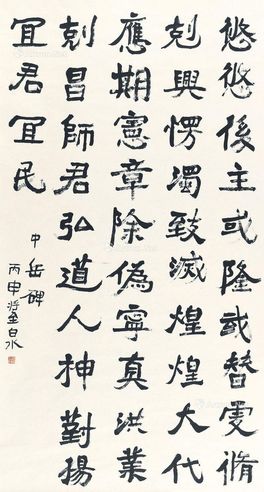 悠悠後主或隆或替虔脩
剋興愕濁致滅煌煌大代
應期憲章除偽寧真洪業
剋昌師君弘道人神對揚
宜君宜民
中岳碑
丙申將至白水